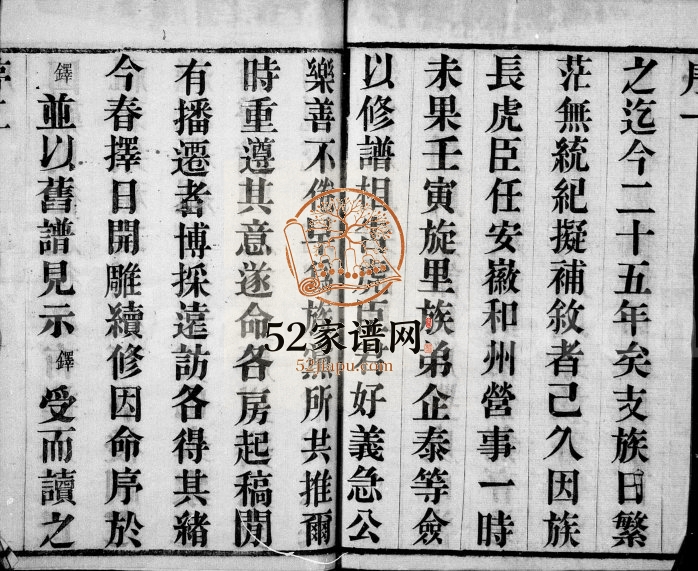 之迄今二十五年矣支族日繁
茫無統紀擬補敘者已久因族
長虎臣任安徽和州營事一時
未果壬寅旋里族弟企泰等僉
以修譜相 虎臣 好義急公
樂善不倦 族 所共推爾
時重遵其意遂命各房起稿間
有播遷者博採遠訪各得其緒
今春擇日開雕續修因命序於
鐸並以舊譜見示鐸受而讀之
52家谱网
52jiapu.com